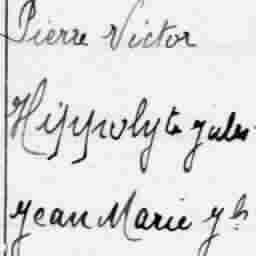 Pierre Victor
Hippolyte Jules
Jean Marie Jh